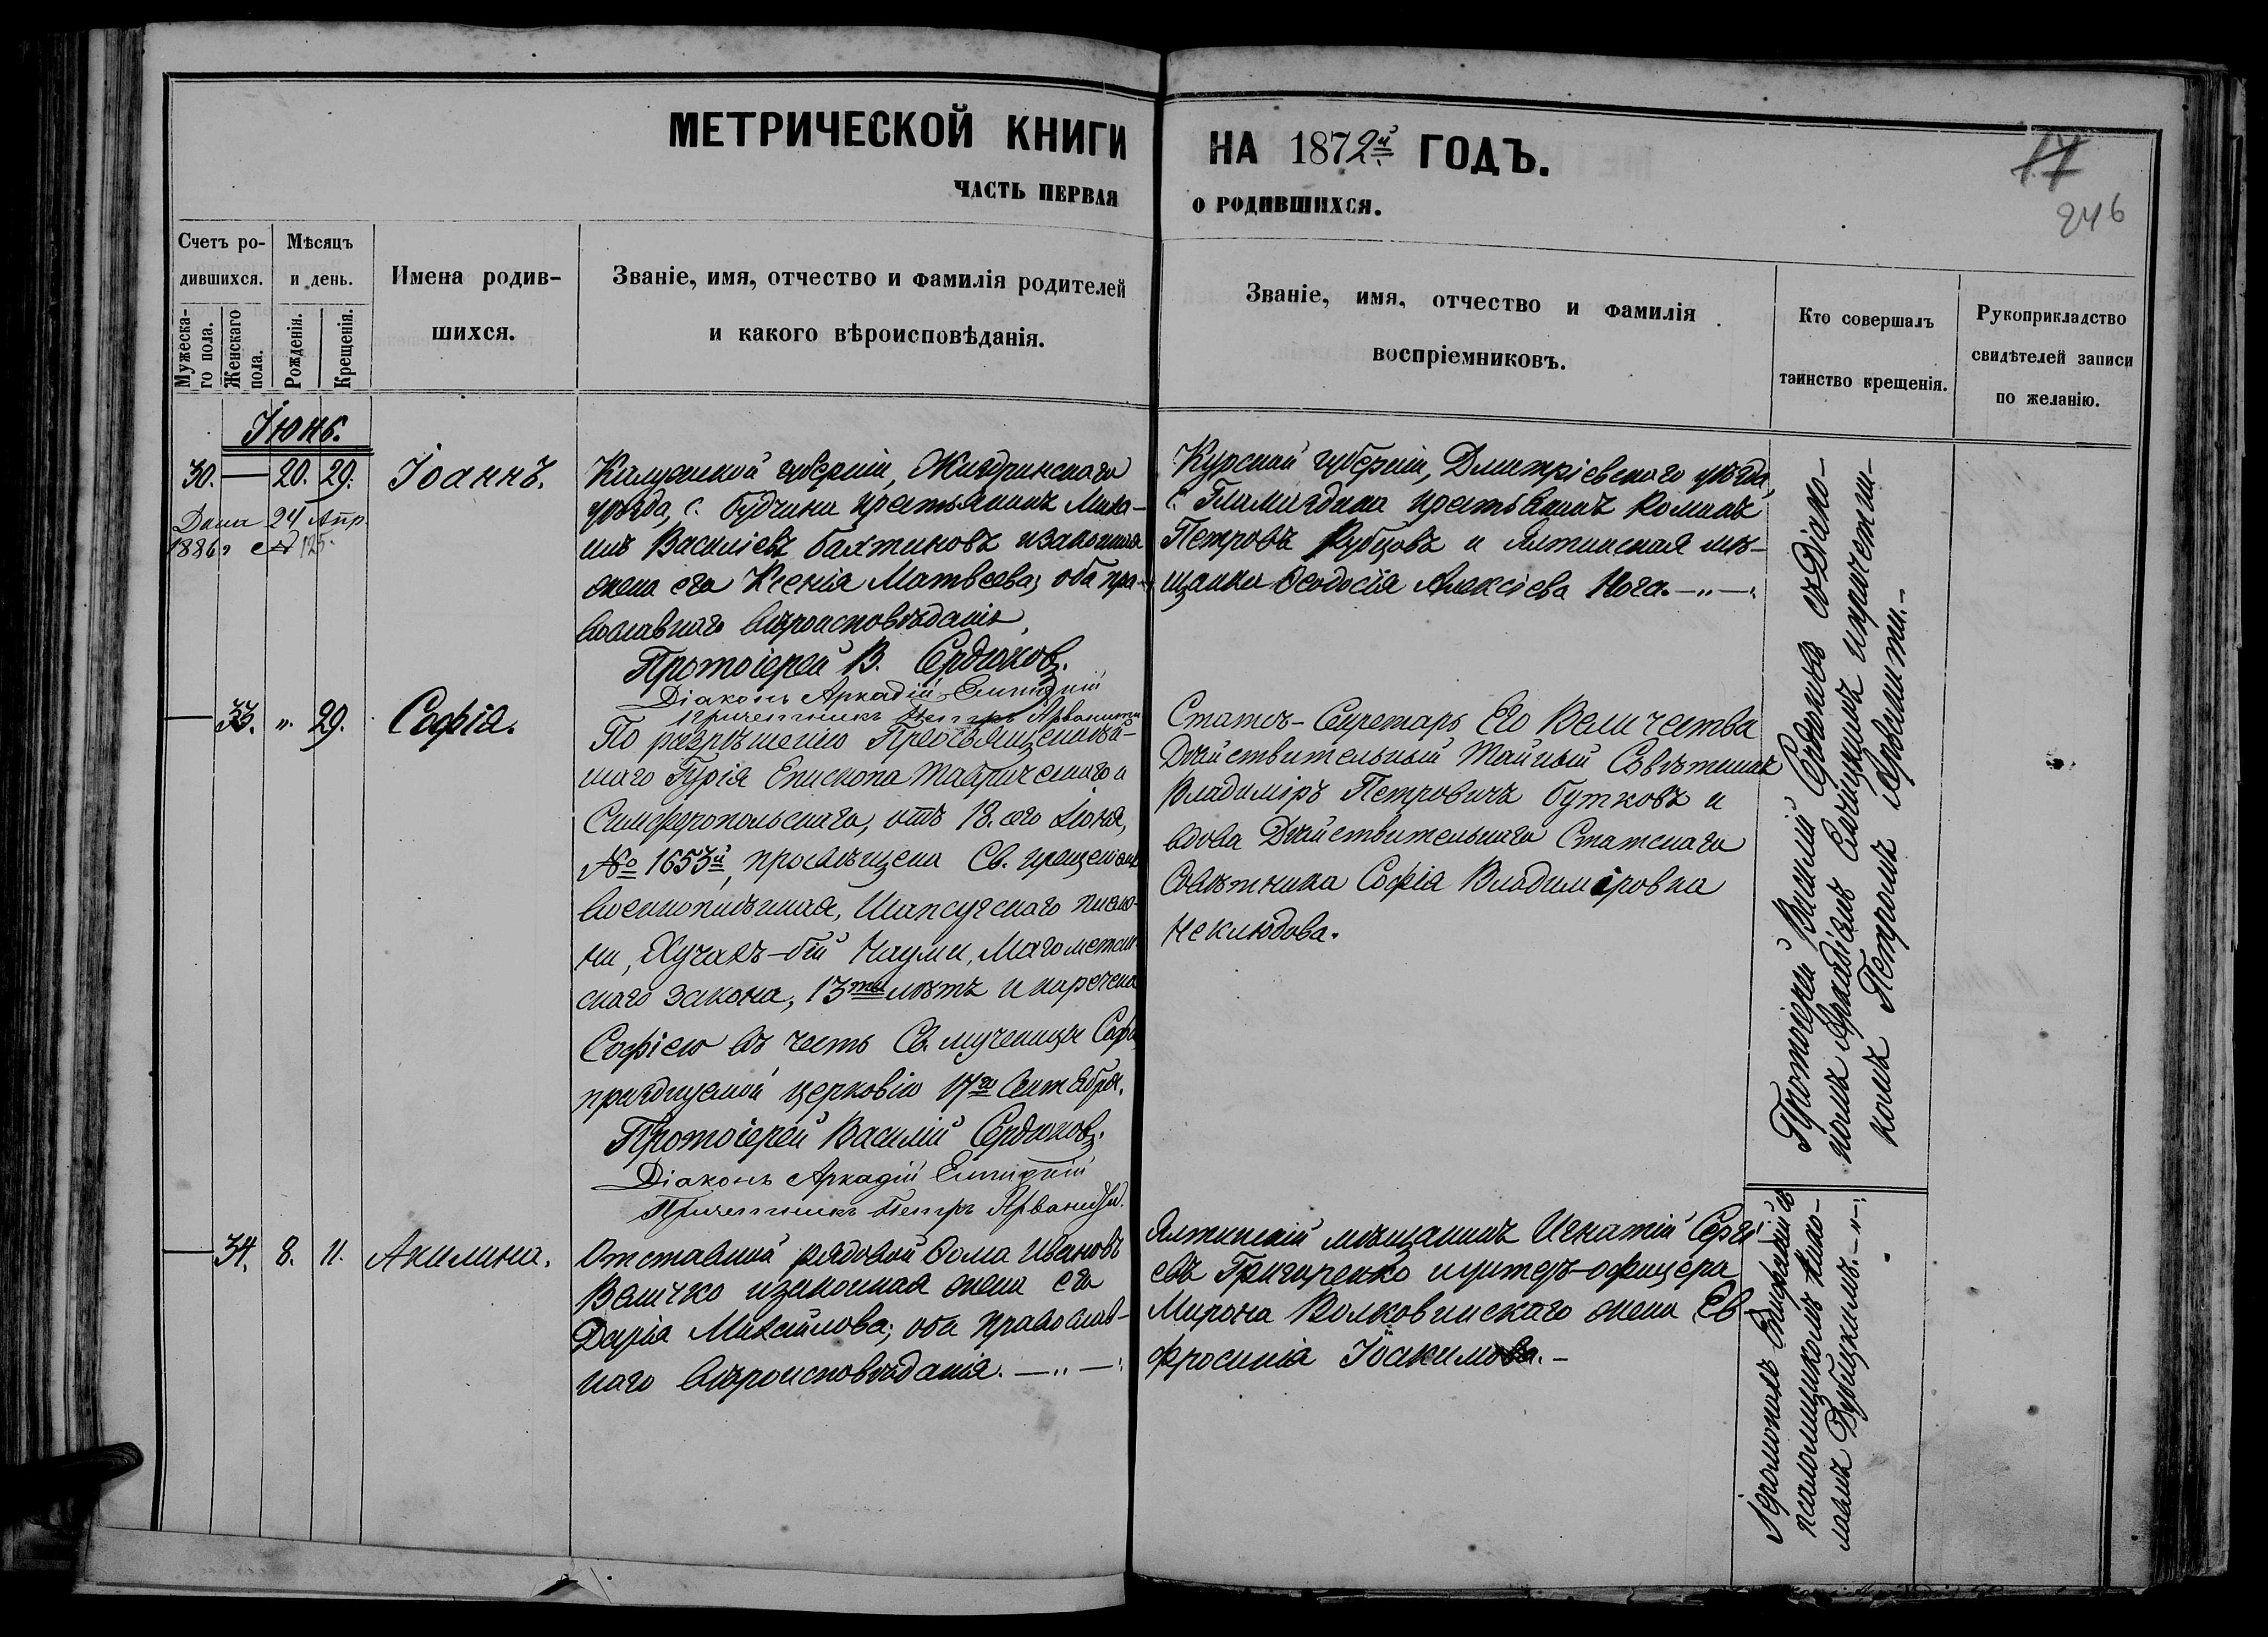 МЕТРИЧЕСКОЙ КНИГИ НА 1872й ГОДЪ.
ЧАСТЬ ПЕРВАЯ О РОДИВШИХСЯ.
17
246
Счетъ ро-
дившихся.
Мужеска-
го пола.
Женскаго
пола.
Мѣсяцъ
и день.
Рожденія.
Крещенія.
Имена родив-
шихся.
Званіе, имя, отчество и фамилія родителей
и какого вѣроисповѣданія.
Званіе, имя, отчество и фамилія
воспріемниковъ.
Кто совершалъ
таинство крещенія.
Рукоприкладство
свидѣтелей записи
по желанію.
Іюнь.
30. — 20. 29. Іоаннъ.
Дана 24 Апр.
1886 г № 125.
Калужской губерніи, Жиздринскаго
уѣзда, с. Будчина крестьянинъ Миха-
илъ Василіевъ Бахтиновъ и законная
жена его Ксенія Матвеева; оба пра-
вославнаго вѣроисповѣданія,
Протоіерей В. Сердюковъ.
Діаконъ Аркадій
Причетникъ Петръ Арванити
Курской губерніи, Дмитріевскаго уѣзда,
с. крестьянинъ
Петровъ Рубцовъ и Ялтинская мѣ-
щанка Ѳеодосія Алексіева Нога. —„—
— 33. „ 29. Софія.
По разрѣшенію Преосвященнѣй-
шаго Гурія Епископа Таврическаго и
Симферопольскаго, отъ 18. сего Іюня,
№ 1653й, просвѣщена Св. крещеніемъ
военноплѣнная, Шапсугскаго племе-
ни, Хучахъ-бій Чауми, Магометан-
скаго закона, 13ти лѣтъ и наречена
Софіею въ честь Св. мученицы Софіи
празднуемой церковію 17го Сентября.
Протоіерей Василій Сердюковъ.
Діаконъ Аркадій
Причетникъ Петръ Арваниди.
Статсъ-Секретарь Его Величества
Дѣйствительный Тайный Совѣтникъ
Владиміръ Петровичъ Бутковъ и
вдова Дѣйствительнаго Статскаго
Совѣтника Софія Владиміровна
Неклюдова.
Протоіерей Василій Сердюковъ съ Діако-
номъ Аркадіемъ и причетни-
комъ Петромъ Арванити.—
— 34. 8. 11. Акилина.
Отставной рядовой Ѳома Ивановъ
Величко и законная жена его
Дарія Михаилова; оба православ-
наго вѣроисповѣданія. —„—
Ялтинскій мѣщанинъ Игнатій Сергі-
евъ Григоренко и унтеръ-офицера
Мирона Волковинскаго жена Ев-
фросинія Іоакимова.—
Іеромонахъ съ
псаломщикомъ Нико-
лаемъ Дубицкимъ.—„—